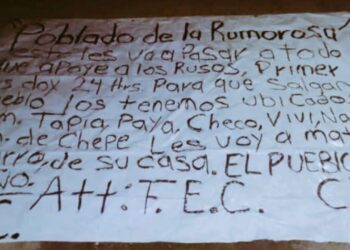 "Poblado de la Rumorosa"
est les va a Pasar a todo
que apoye a los Rusos, Primer
s dox 24 Hrs Para que Salgan
eblo los tenemos ubicados
m. Tapia, Paya, Checo, Vivi, Na
n. de Chepe Les voy a mat
rro, de su casa. EL PUEBLO
NO. Att: F.E.C. C
C.